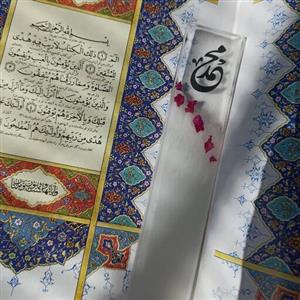 بِسْمِ اللَّهِ الرَّحْمَٰنِ الرَّحِيمِ
الٓمٓ ذَٰلِكَ الْكِتَابُ لَا رَيْبَ فِيهِ هُدًى
لِلْمُتَّقِينَ الَّذِينَ يُؤْمِنُونَ بِالْغَيْبِ وَيُقِيمُونَ
الصَّلَاةَ وَمِمَّا رَزَقْنَاهُمْ يُنْفِقُونَ
وَالَّذِينَ يُؤْمِنُونَ بِمَا أُنْزِلَ إِلَيْكَ وَمَا أُنْزِلَ مِنْ
قَبْلِكَ وَبِالْآخِرَةِ هُمْ يُوقِنُونَ أُولَٰئِكَ عَلَىٰ
هُدًى مِنْ رَبِّهِمْ وَأُولَٰئِكَ هُمُ الْمُفْلِحُونَ
محمد